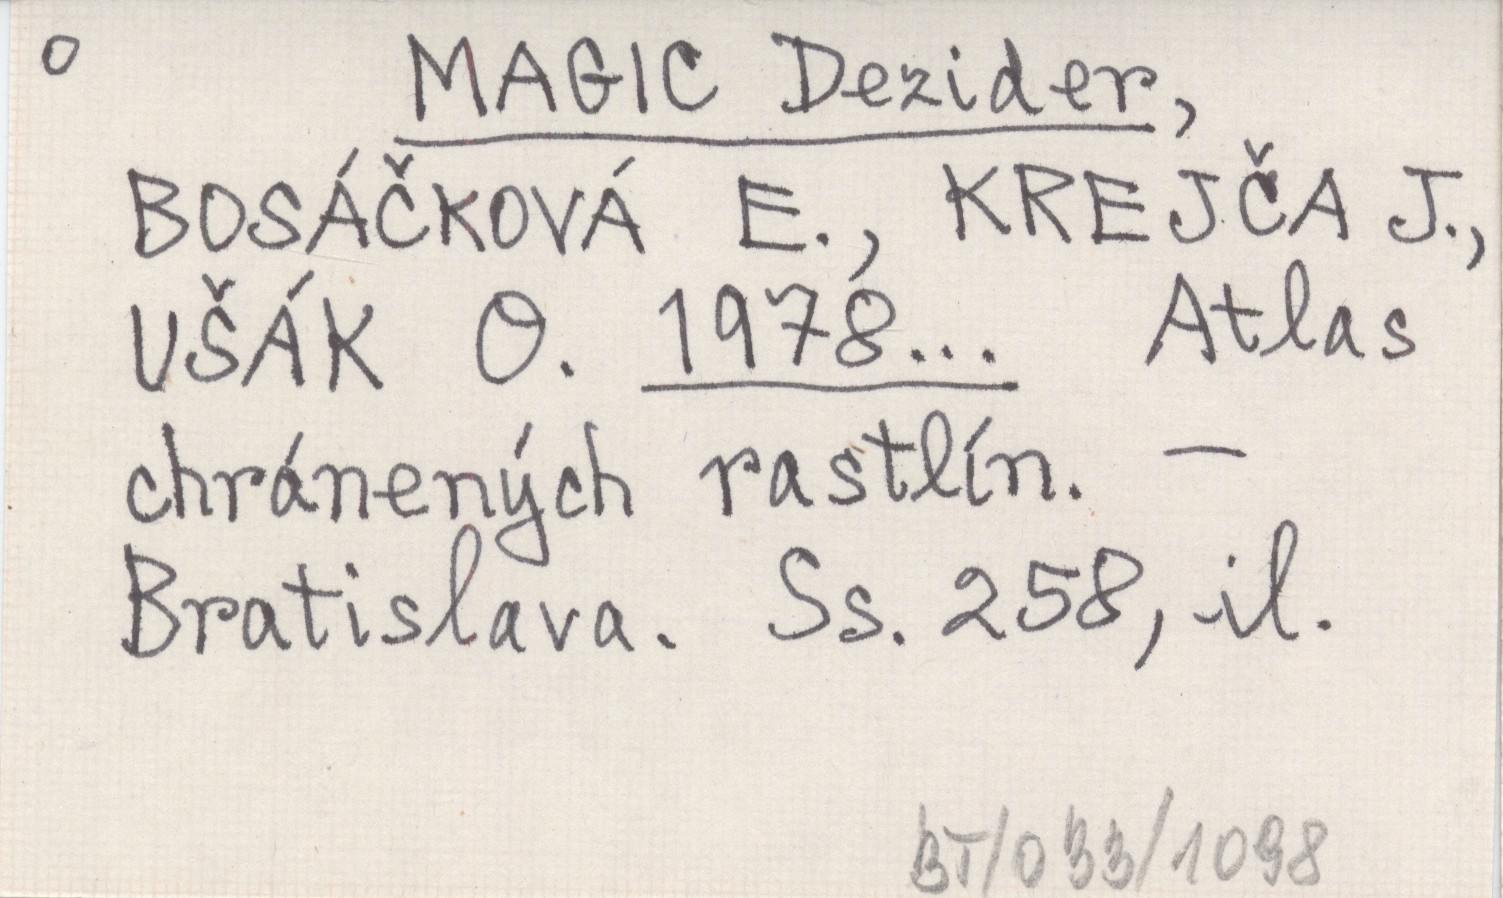 O
MAGIC Dezider,
BOSÁČKOVÁ E., KREJČA J.,
UŠÁK O. 1978... Atlas
chránených rastlín. —
Bratislava. Ss. 258, il.
BT/033/1098